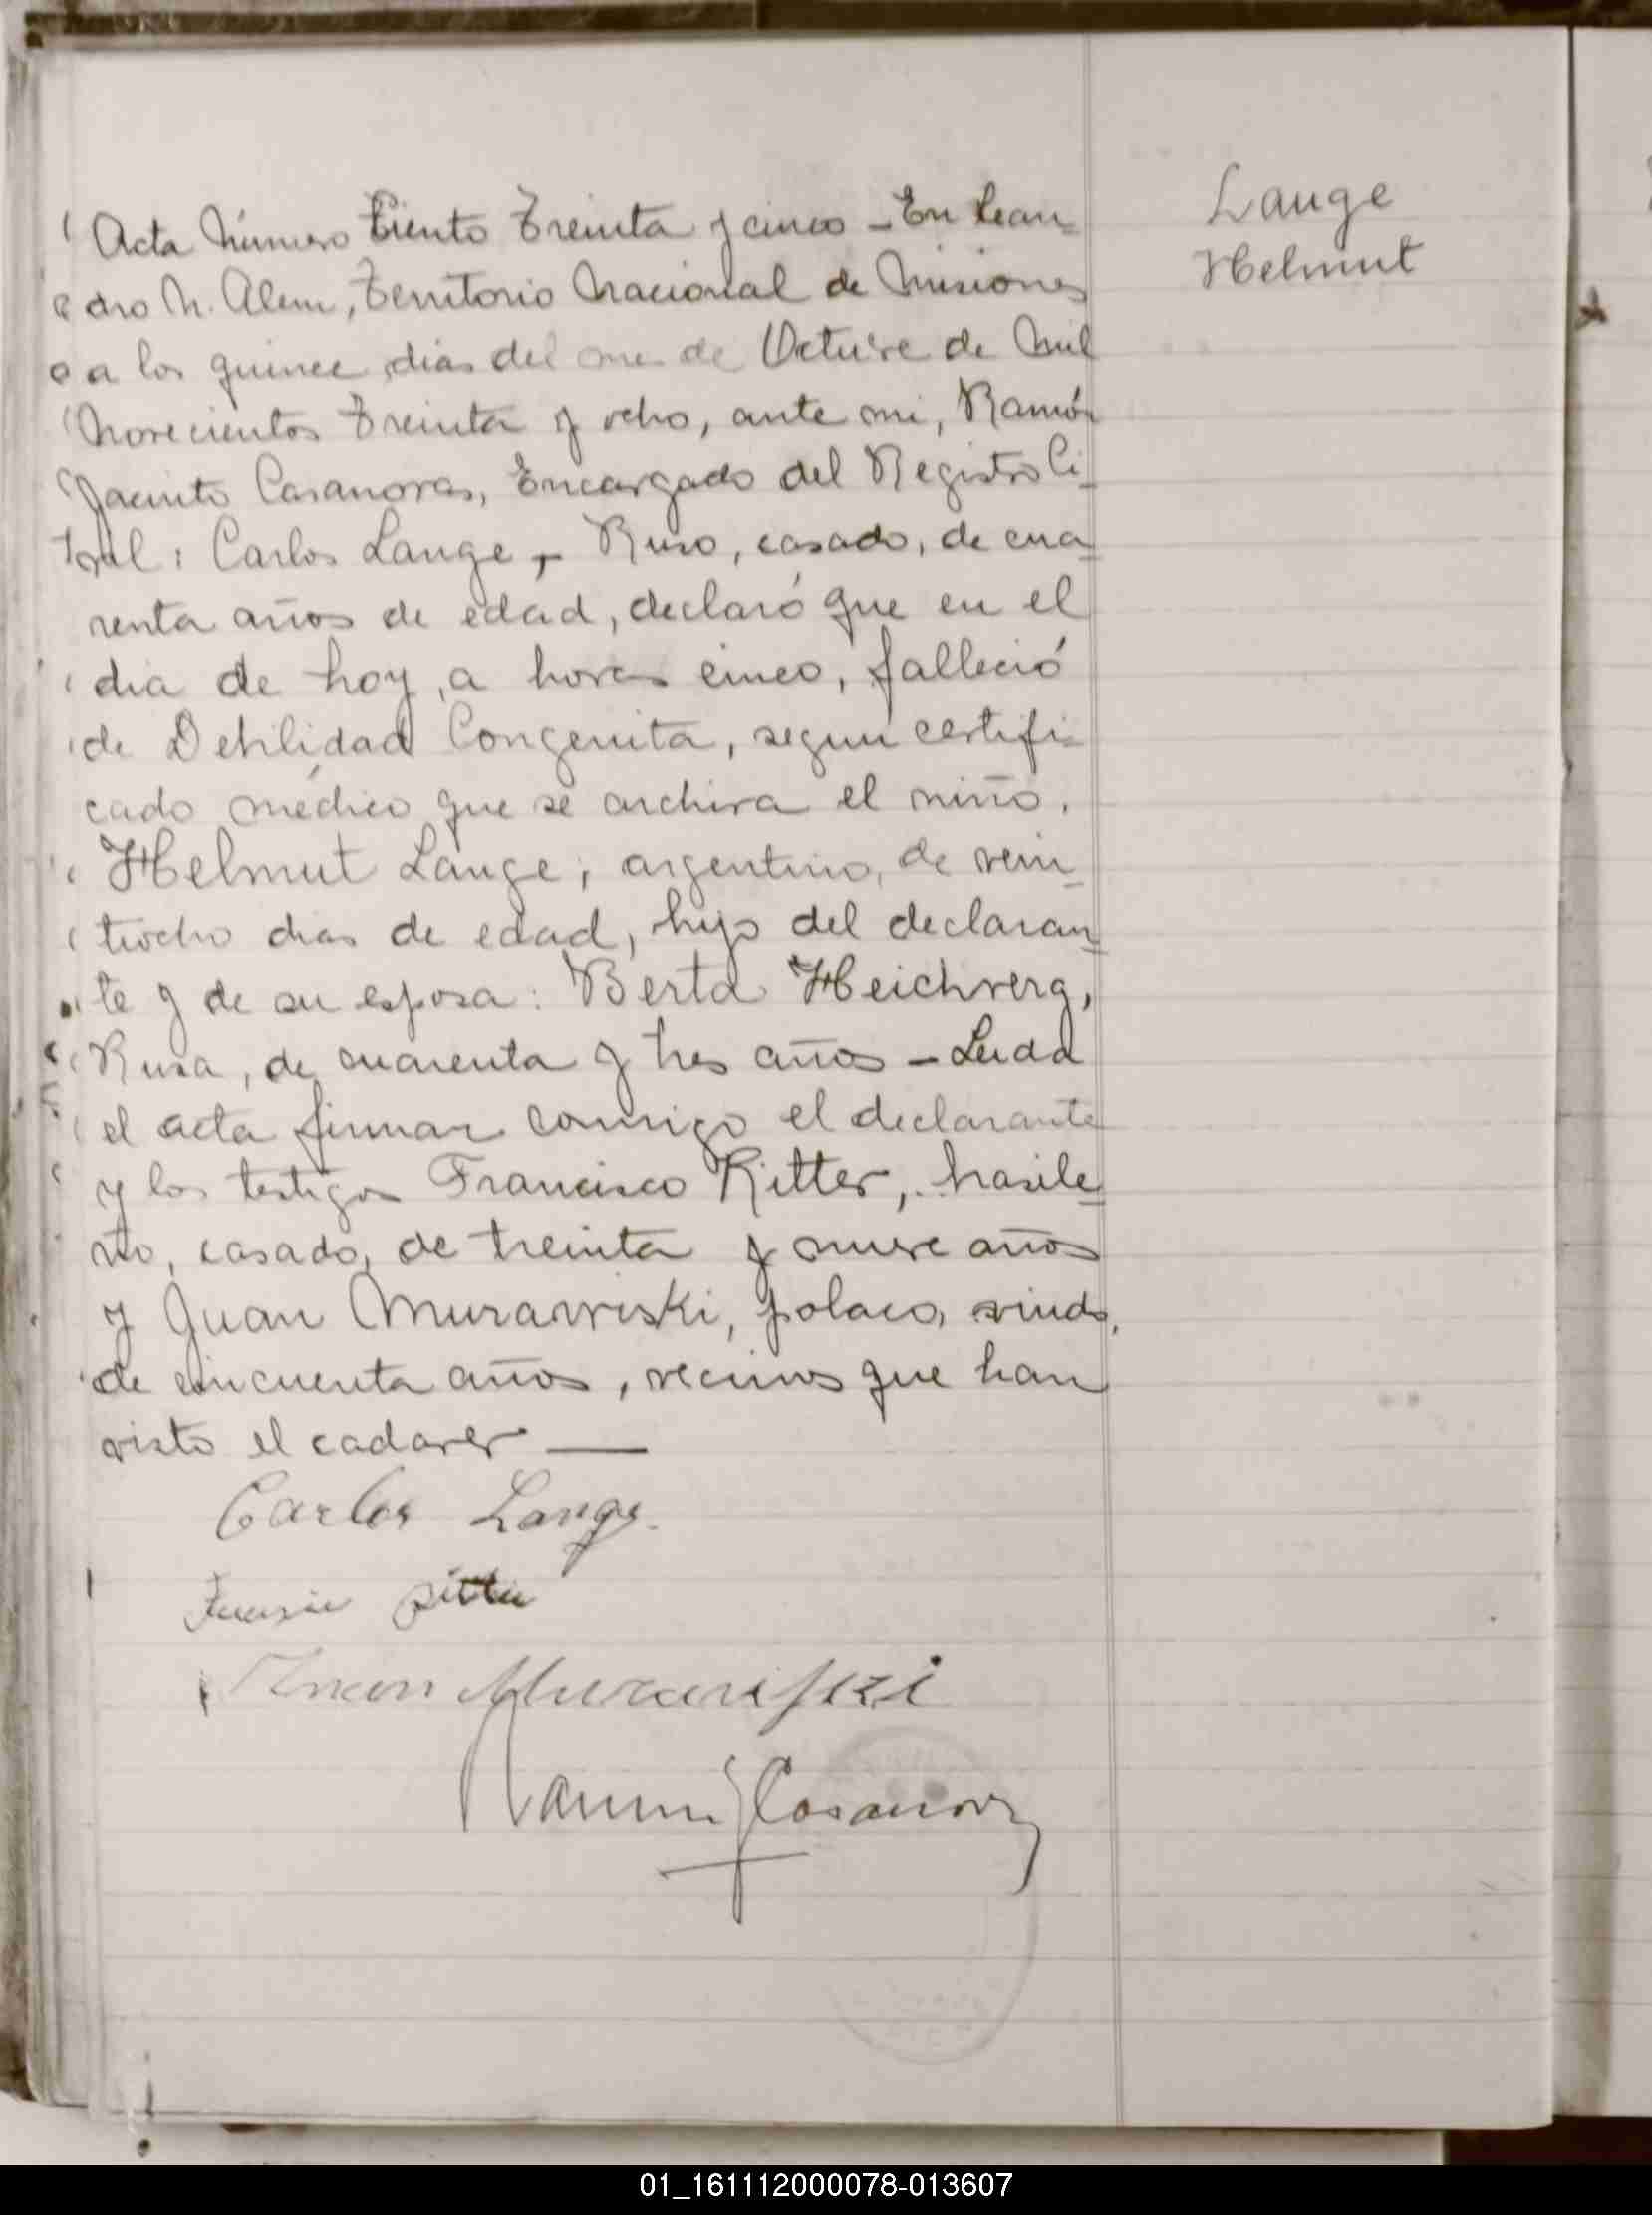 Acta Número Ciento Treinta y cinco - En Lean-
dro N. Alem, Territorio Nacional de Misiones
a los quince dias del mes de Octubre de Mil
Novecientos Treinta y ocho, ante mi, Ramón
Jacinto Casanovas, Encargado del Registro Ci-
vil: Carlos Lange, - Ruso, casado, de cua-
renta años de edad, declaró que en el
dia de hoy, a horas cinco, falleció
de Debilidad Congenita, segun certifi-
cado médico que se archiva el niño.
Helmut Lange; argentino, de vein-
tiocho dias de edad, hijo del declaran-
te y de su esposa: Berta Heichverg,
Rusa, de cuarenta y tres años - Leida
el acta firman conmigo el declarante
y los testigos Francisco Ritter, brasile-
ño, casado, de treinta y nueve años
y Juan Murawiski, polaco, viudo,
de cincuenta años, vecinos que han
visto el cadaver
Carlos Lange.
Ritter
Juan Murawiski
Ramón J Casanovas
Lange
Helmut
01_161112000078-013607